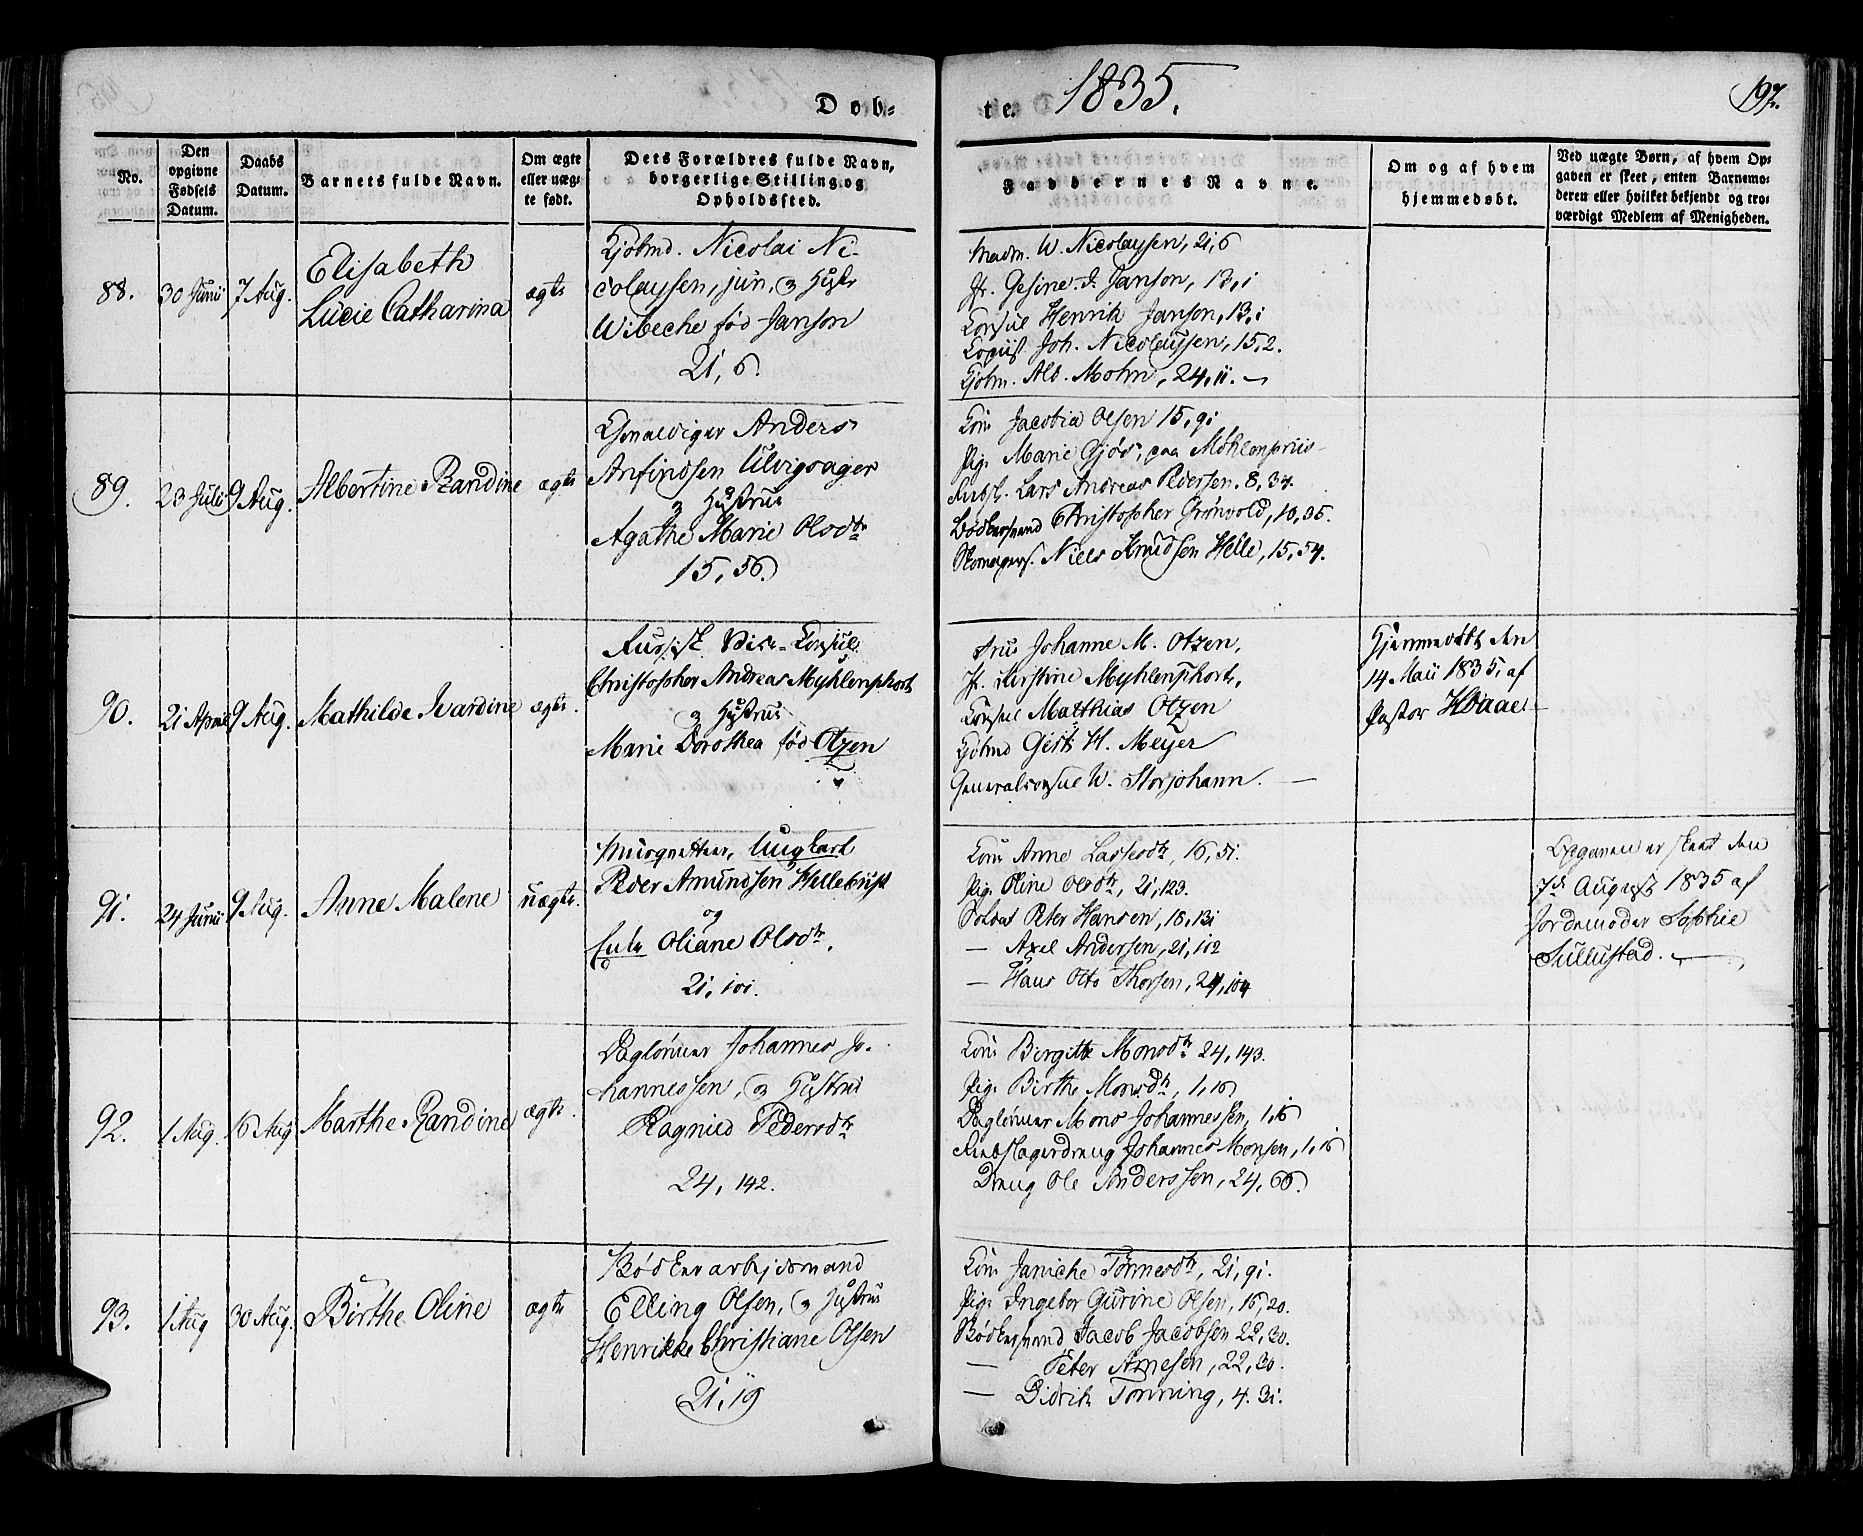 Døb-
te. 1835.
197.
No.
Den opgivne Fødsels Datum.
Daabs Datum.
Barnets fulde Navn.
Om ægte eller uæg-te født.
Dets Forældres fulde Navn, borgerlige Stilling og Opholdssted.
Faddernes Navne.
Om og af hvem hjemmedøbt.
Ved uægte Børn, af hvem Op-
gaven er skeet, enten Barnemo-
deren eller hvilket bekjendt og tro-
værdigt Medlem af Menigheden.
88.
30 Junii
7 Aug.
Elisabeth
Lucie Catharina
ægte
Kjøbmd. Nicolai Ni-
colaysen, jun. og Hustr
Wibeche fød Janson
21, 6.
Madm. W. Nicolaysen, 21, 6
Jfr. Gesine J. Janson, 13, 1
Consul Henrik Janson, 13, 1
Copiist Joh. Nicolaysen, 15, 2.
Kjøbm. Alb. Mohn, 24, 11.
89.
23 Juli
9 Aug.
Albertine Randine
ægte
Anders
Anfindsen Ulvigsager
og Hustrue
Agathe Marie Olsdtr
15, 56.
Kone Jacobia Olsen 15, 91
Pige Marie Gjøs, paa Møhlenpriis
Lars Andreas Pedersen. 8, 34.
Bødkersvend Christopher Grönvold, 10, 35.
Skomagers. Niels Knudsen Helle, 15, 54.
90.
21 April
9 Aug.
Mathilde Ivardine
ægte.
Russisk Vice-Consul
Christopher Andreas Myhlenphort
og Hustrue
Marie Dorothea fød Otzen
Frue Johanne M. Otzen,
Jfr. Kirstine Myhlenphort,
Consul Matthias Otzen
Kjøbmd Gerh H. Meyer
Generalconsul W. Storjohann.
Hjemmedøbt den
14 Maii 1835, af
Pastor
91.
24 Junii
9 Aug.
Anne Malene
uægte.
Musqueteer, Ungkarl
Peder Amundsen Hellebust
og
Enke Oliane Olsdtr.
21, 101.
Kone Anne Lassesdtr, 16, 51.
Pige Oline Olsdtr, 21, 123.
Soldat Peter Hansen, 18, 131
— Axel Andersen, 21, 112
— Hans Otto Thorsen, 24, 104
Opgaven er skeet den
7de August 1835 af
Jordemoder Sophie
Sullustad.
92.
1 Aug.
16 Aug
Marthe Randine
ægte.
Dagleier Johannes Jo-
hannessen, og Hustrue
Ragnild Pedersdtr
24, 142.
Kone Birgitte Monsdtr 24, 143.
Pige Birthe Monsdtr, 1, 16
Dagleier Mons Johannessen, 1, 16
Rebslagerdreng Johannes Monsen, 1, 16
Dreng Ole Anderssen, 24, 66.
93.
1 Aug
30 Aug.
Birthe Oline
ægte
Bødkerarbejdsmand
Elling Olsen, og Hustrue
Henrikke Christiane Olsen
21, 19
Kone Janiche Tønnesdtr, 21, 91.
Pige Ingebor Gurine Olsen, 16, 20.
Bødkersvend Jacob Jacobsen 22, 30.
— Peter Arnesen, 22, 30.
— Didrik Tønning, 4. 31.